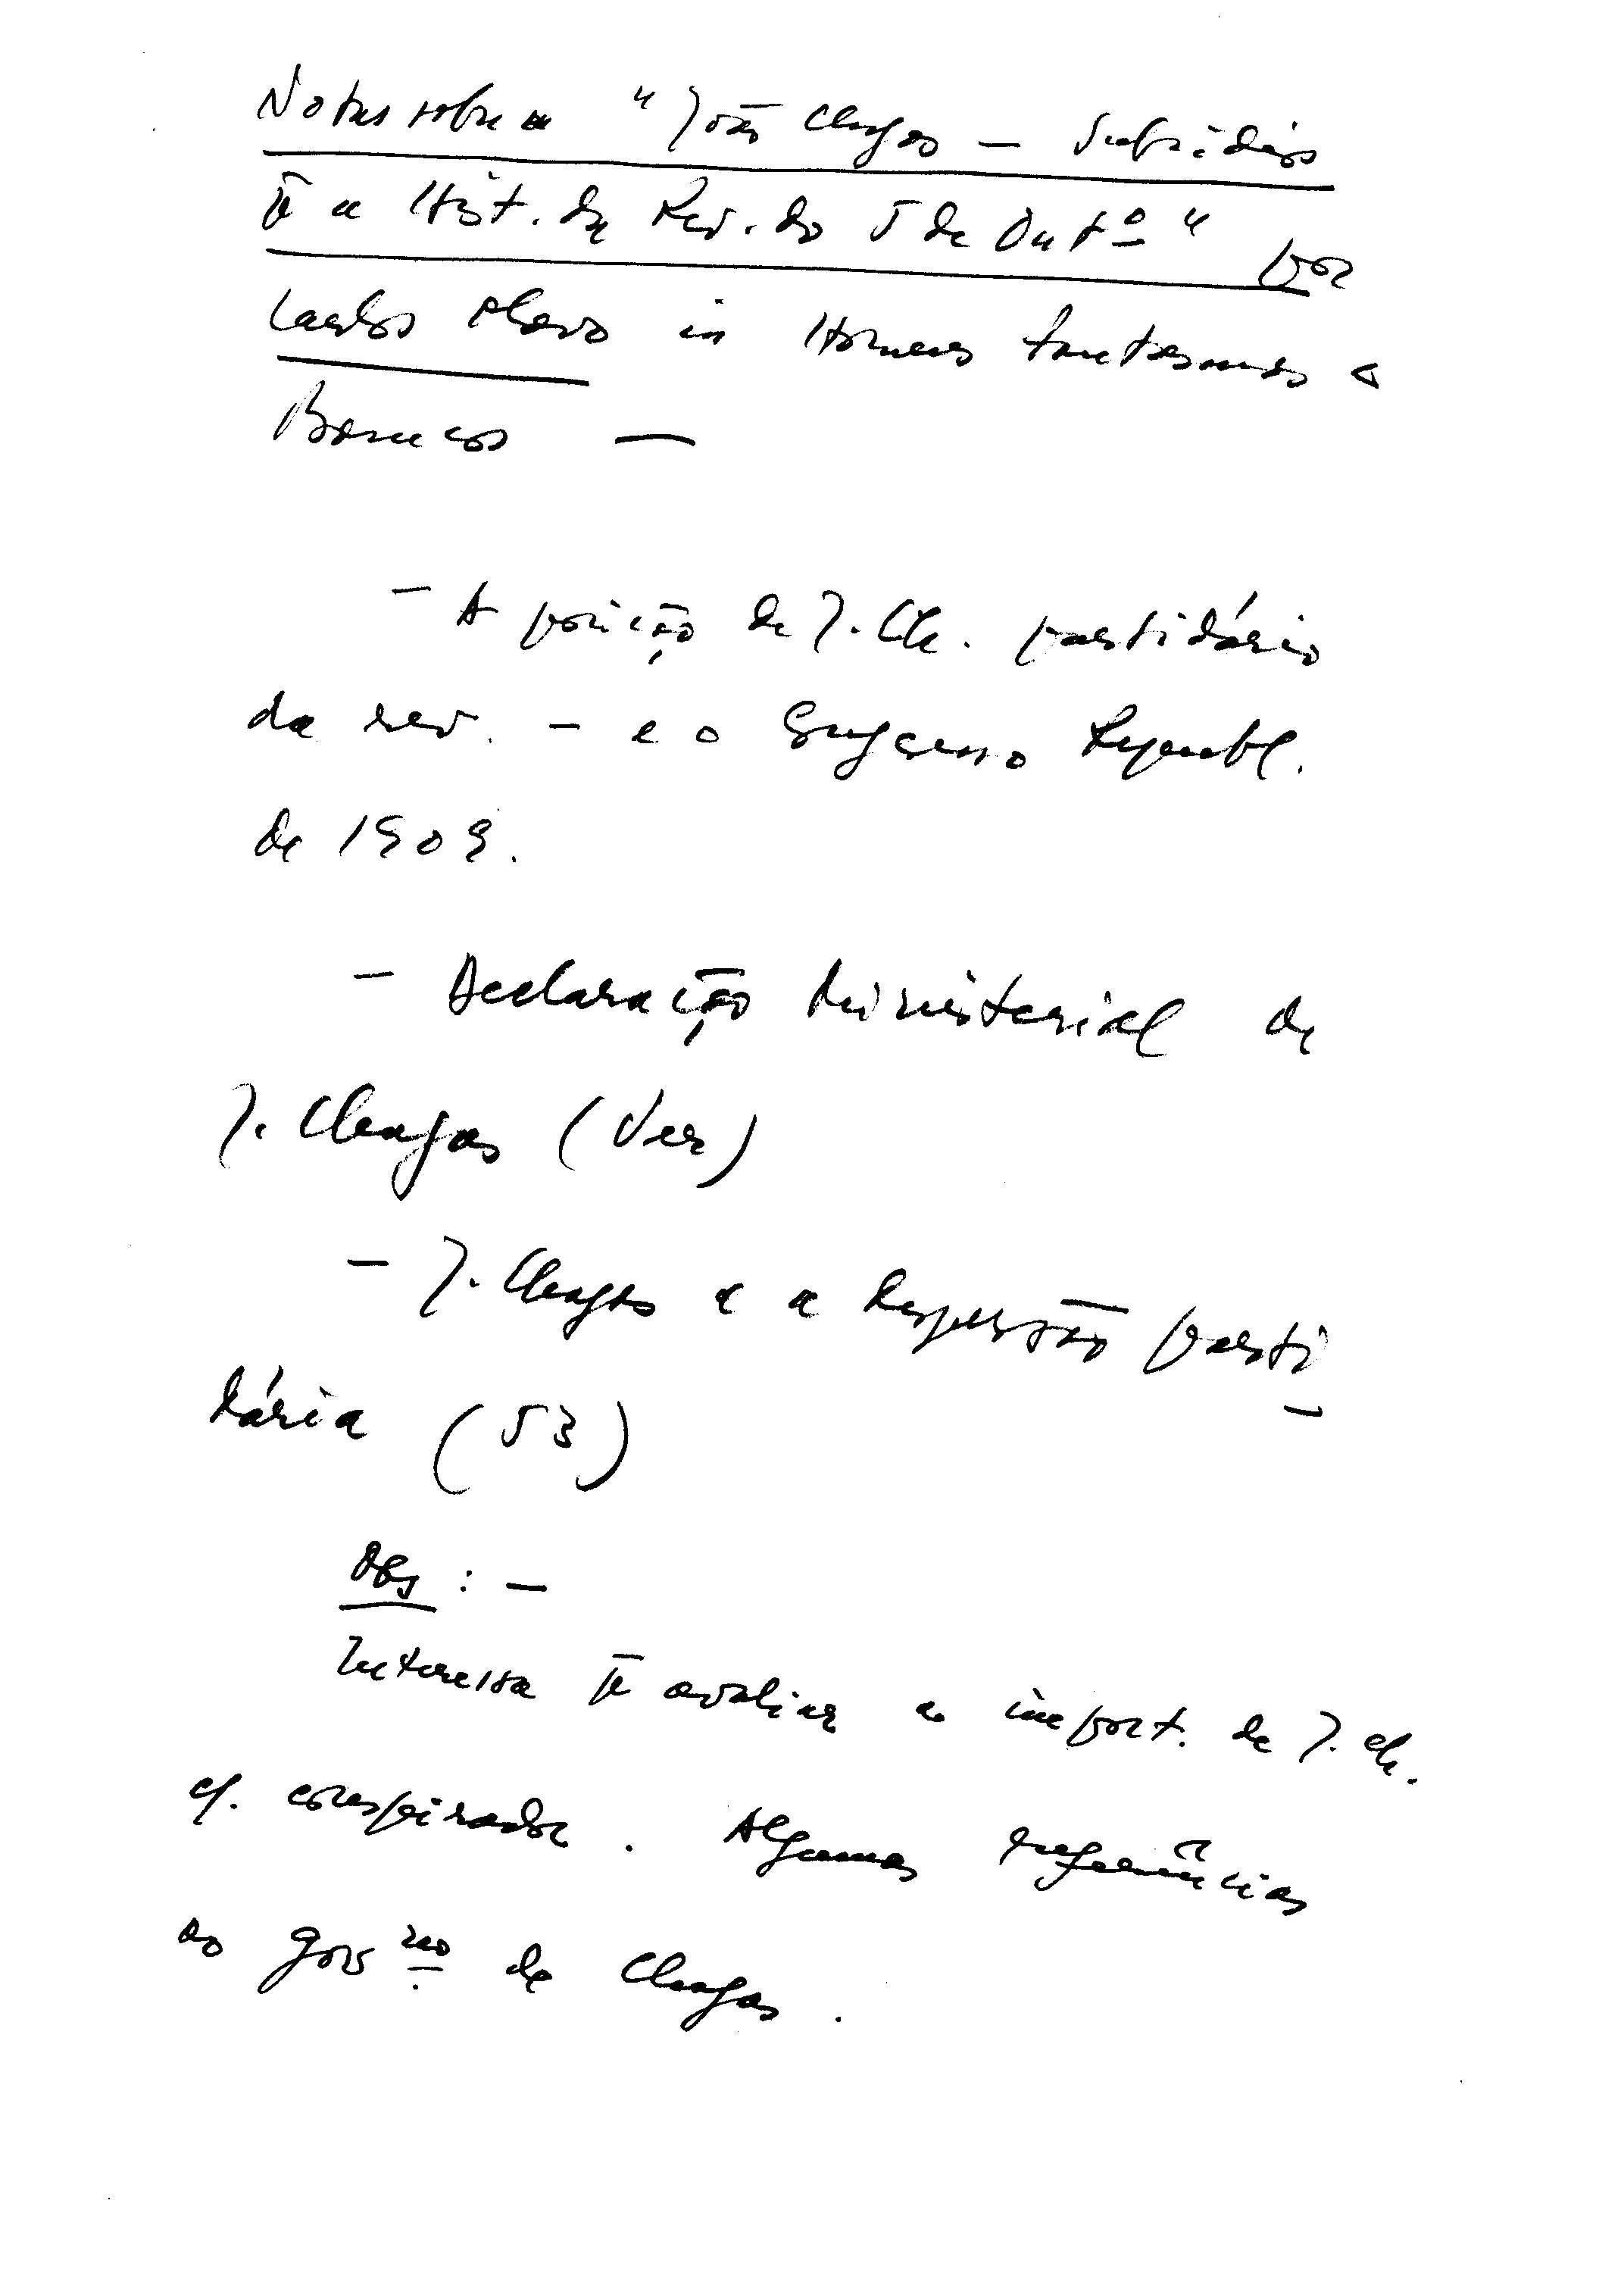 Notas sobre "João Chagas — Subsídios
pª a Hist. da Rev. do 5 de Outº" por
Carlos Olavo in Homens Fantasmas e
Bonecos —
— A posição de J. Ch. partidário
da rev. — e o Congresso Republ.
de 1909.
— Declaração Ministerial de
J. Chagas (Ver)
— J. Chagas e a Repressão parti-
dária (53)
Obs : —
Interessa pª avaliar a import. de J. Ch.
cf. conspirador. Algumas referências
ao govno de Chagas.